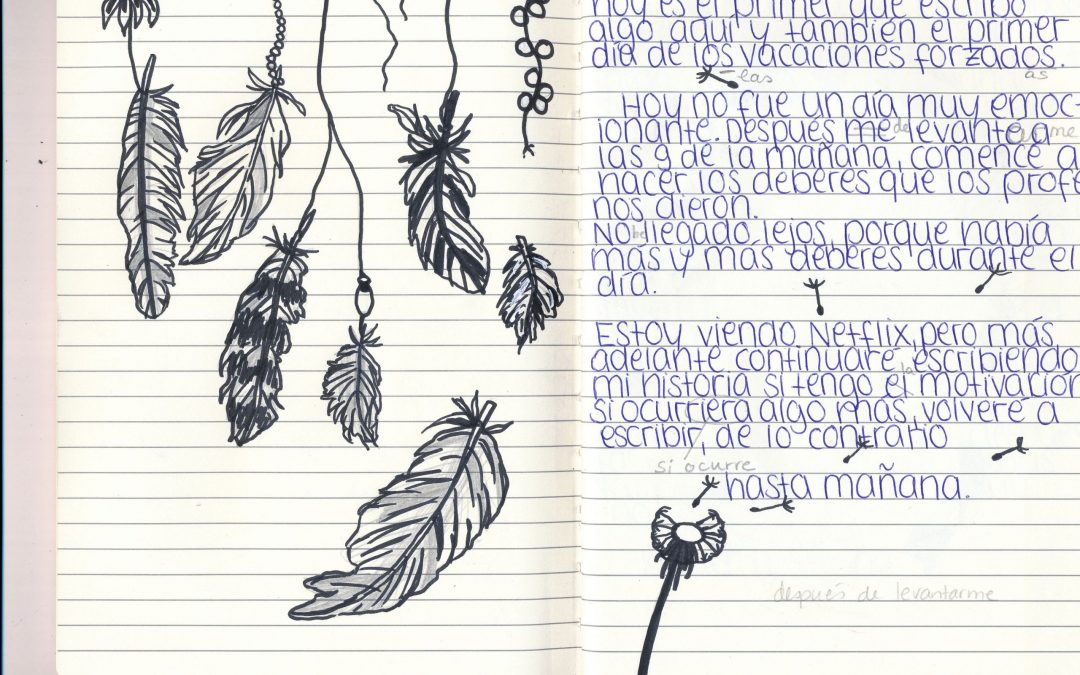 hoy es el primer que escribo
algo aquí y también el primer
día de los vacaciones forzados.
las
as
Hoy no fue un día muy emoc-
ionante. Después me levante a
de
arme
las 9 de la mañana, comencé a
hacer los deberes que los profe
nos dieron.
No llegado lejos, porque había
he
más y más deberes durante el
día.
Estoy viendo Netflix, pero más
adelante continuare escribiendo
mi historia si tengo el motivación
la
si ocurriera algo más, volveré a
escribir, de lo contrario
si ocurre
hasta mañana.
después de levantarme